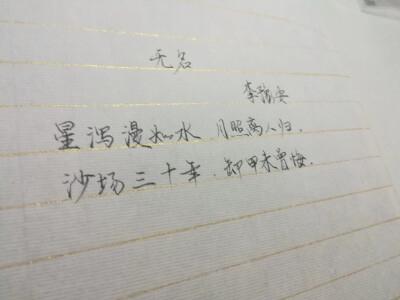 无名
李瑞安
星泻漫如水 月照离人归.
沙场三十年.卸甲未曾悔.